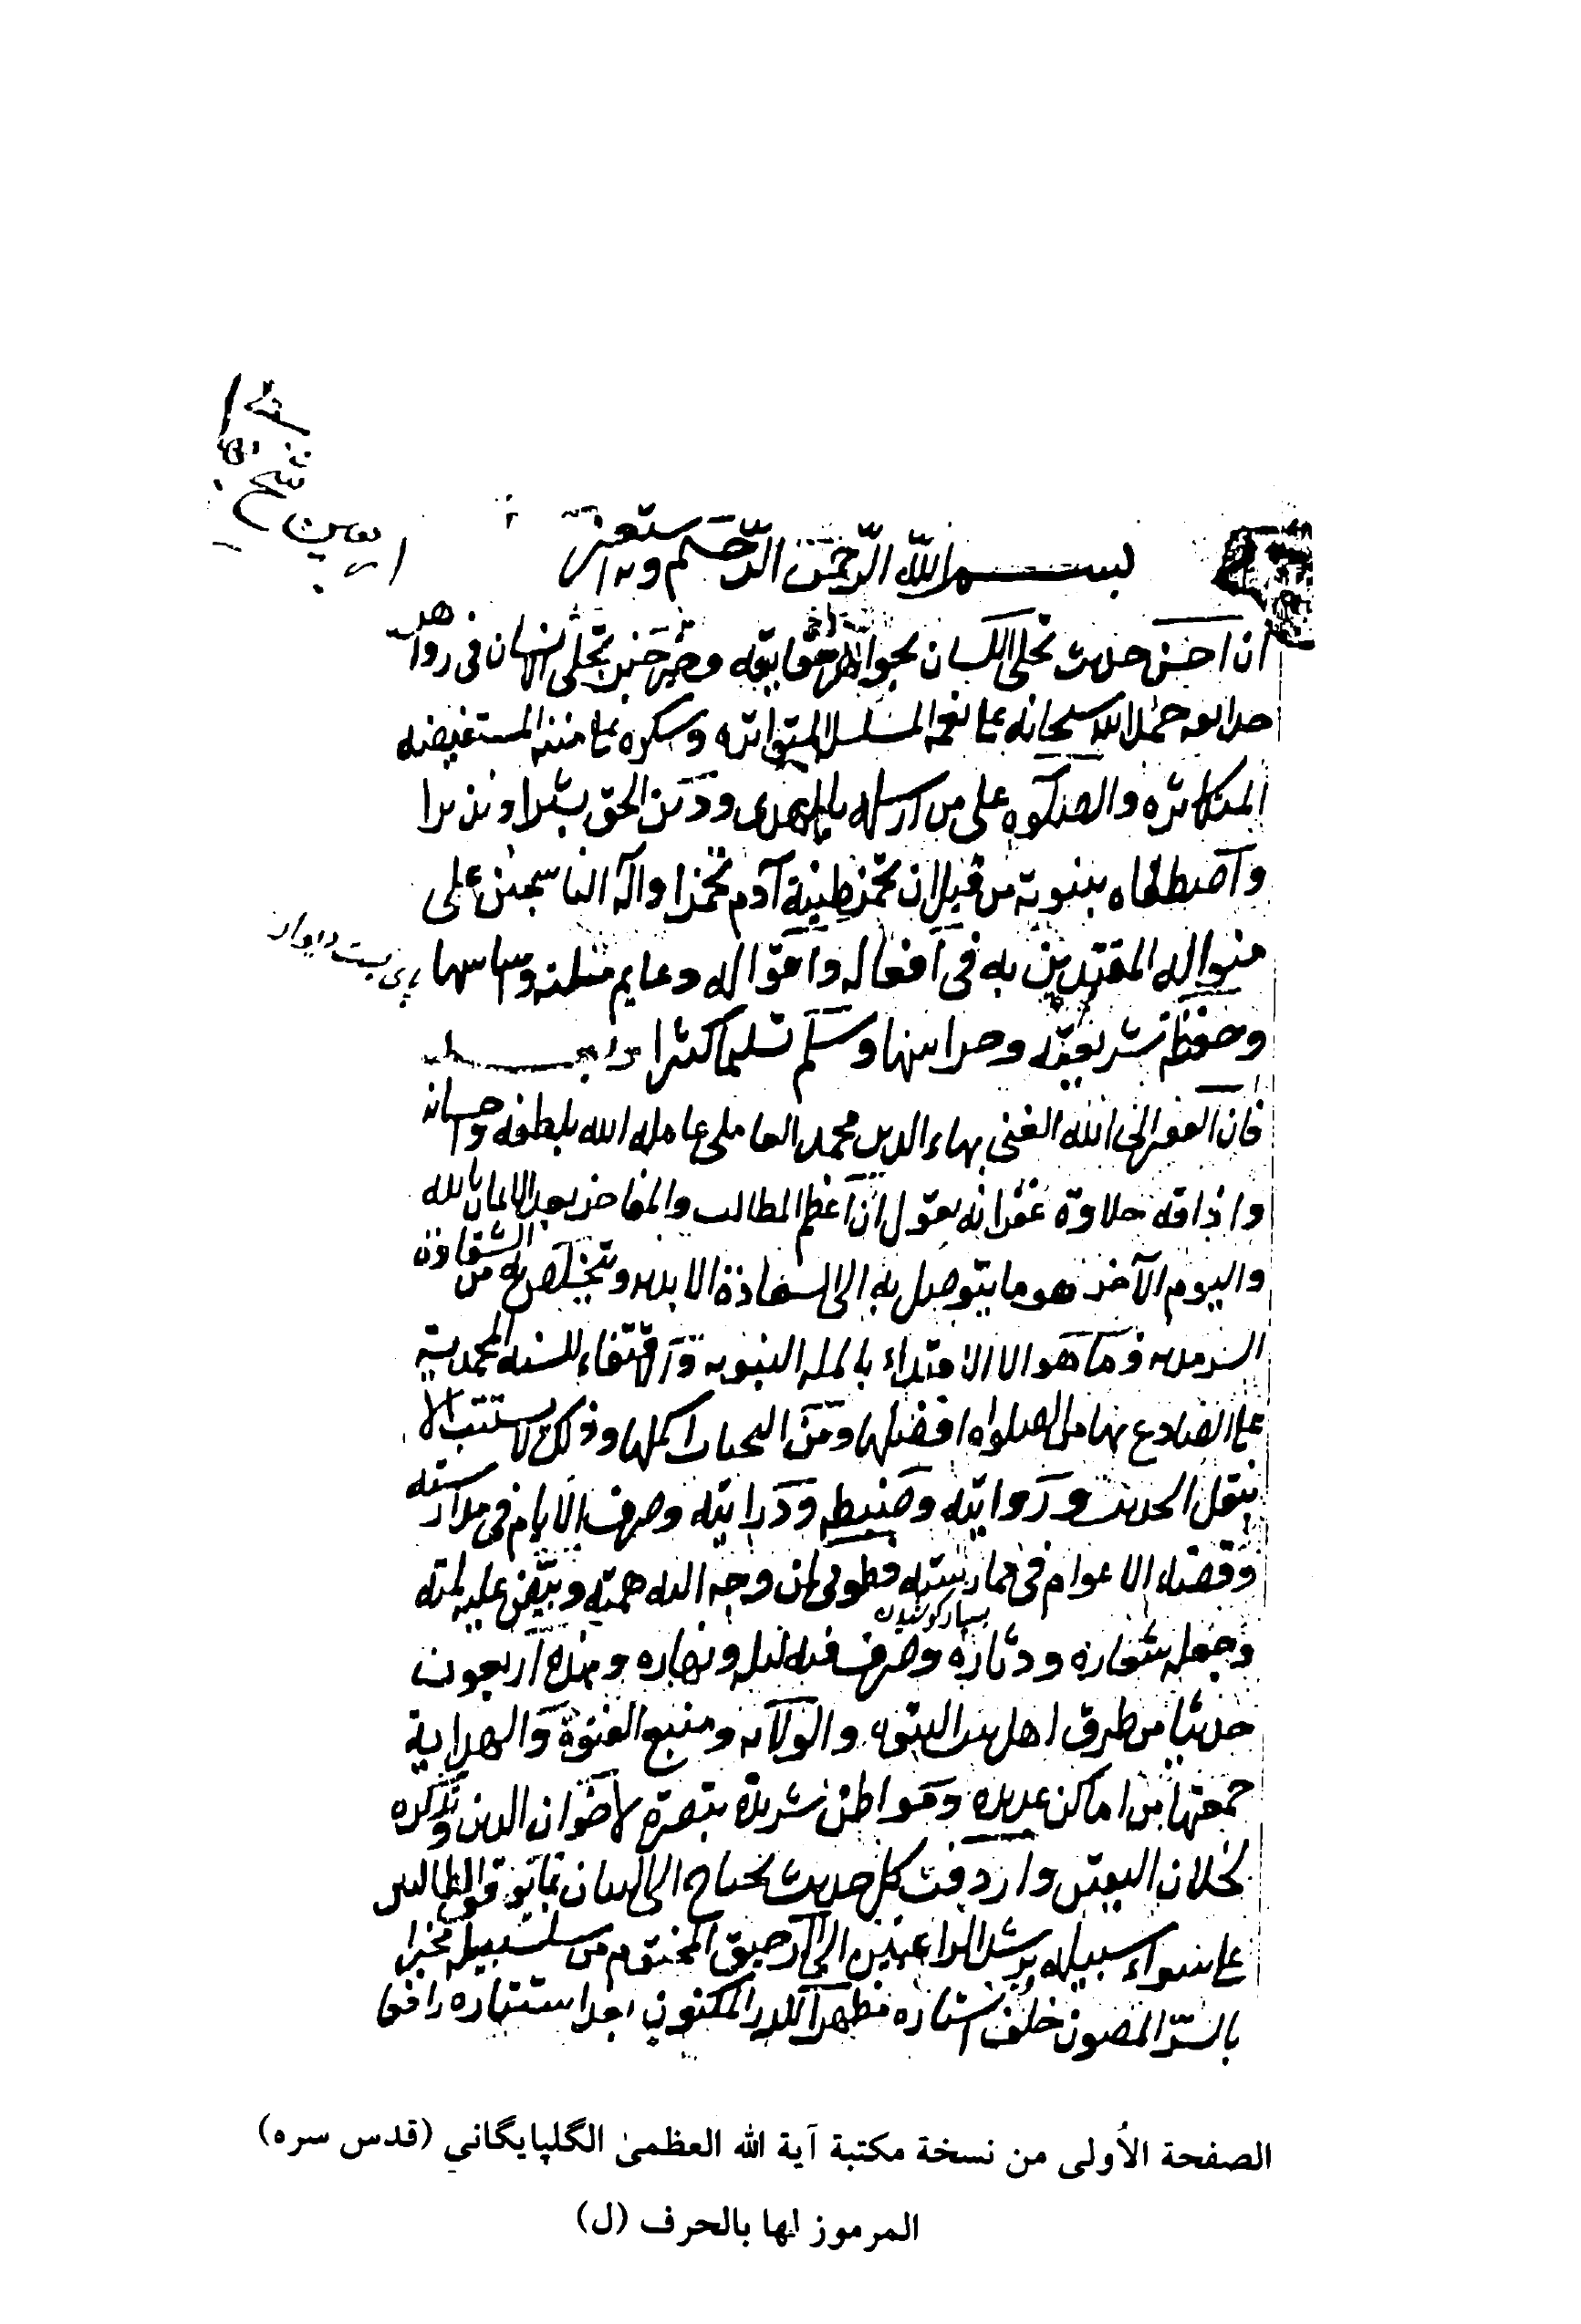 بسم الله الرحمن الرحيم وبه نستعين
ان احسن حديث تحلى اللسان بجواهر حقايقه وخير خبر تجلى الانسان فى زواهر
حدايقه حمد الله سبحانه على نعمه المسلسل المتواتره وشكره على مننه المستفيضه
المتكاثره والصلوه على من ارسله بالهدى ودين الحق بشيرا ونذيرا
واصطفاه بنبوته من قبل ان تخمر طينة آدم تخميرا وآله الناسجين على
منواله المقتدين به فى افعاله واقواله دعايم ملته واساسها
وحفظة شريعته وحراسها وسلم تسليما كثيرا وبعد
فان الفقير الى الله الغنى بهاء الدين محمد العاملى عامله الله بلطفه واحسانه
واذاقه حلاوة غفرانه يقول ان اعظم المطالب والمفاخر بعد الايمان بالله
واليوم الآخر هو ما يتوصل به الى السعادة الابديه ويتخلص به من الشقاوة
السرمديه وما هو الا الاقتداء بالمله النبويه والاقتفاء للسنه المحمدية
على الصادع بها من الصلواه افضلها ومن التحيات اكملها وذلك لا يستتب الا
بنقل الحديث وروايته وضبطه ودرايته وصرف الايام فى مدارسته
وقضاء الاعوام فى ممارسته فطوبى لمن وجه اليه همته وبيّض عليه لمته
وجعله شعاره ودثاره وصرف فيه ليله ونهاره وهذه اربعون
حديثا من طرق اهل بيت النبوه والولايه ومنبع الفتوة والهداية
جمعتها من اماكن عديده ومواطن شريدة تبصرة لاخوان الدين وتذكره
لخلان اليقين واردفت كل حديث يحتاج الى البيان بما يوقف الطالبين
على سواء سبيله ويرشد الراغبين الى الرحيق المختوم من سلسبيله مخبرا
بالسرّ المصون خلف استاره مظهرا للدر المكنون بعد استتاره رافعا
پى بست ديوار
بسيار كوشيدن
الصفحة الأولى من نسخة مكتبة آية الله العظمىٰ الگلپايگاني (قدس سره)
المرموز لها بالحرف (ل)